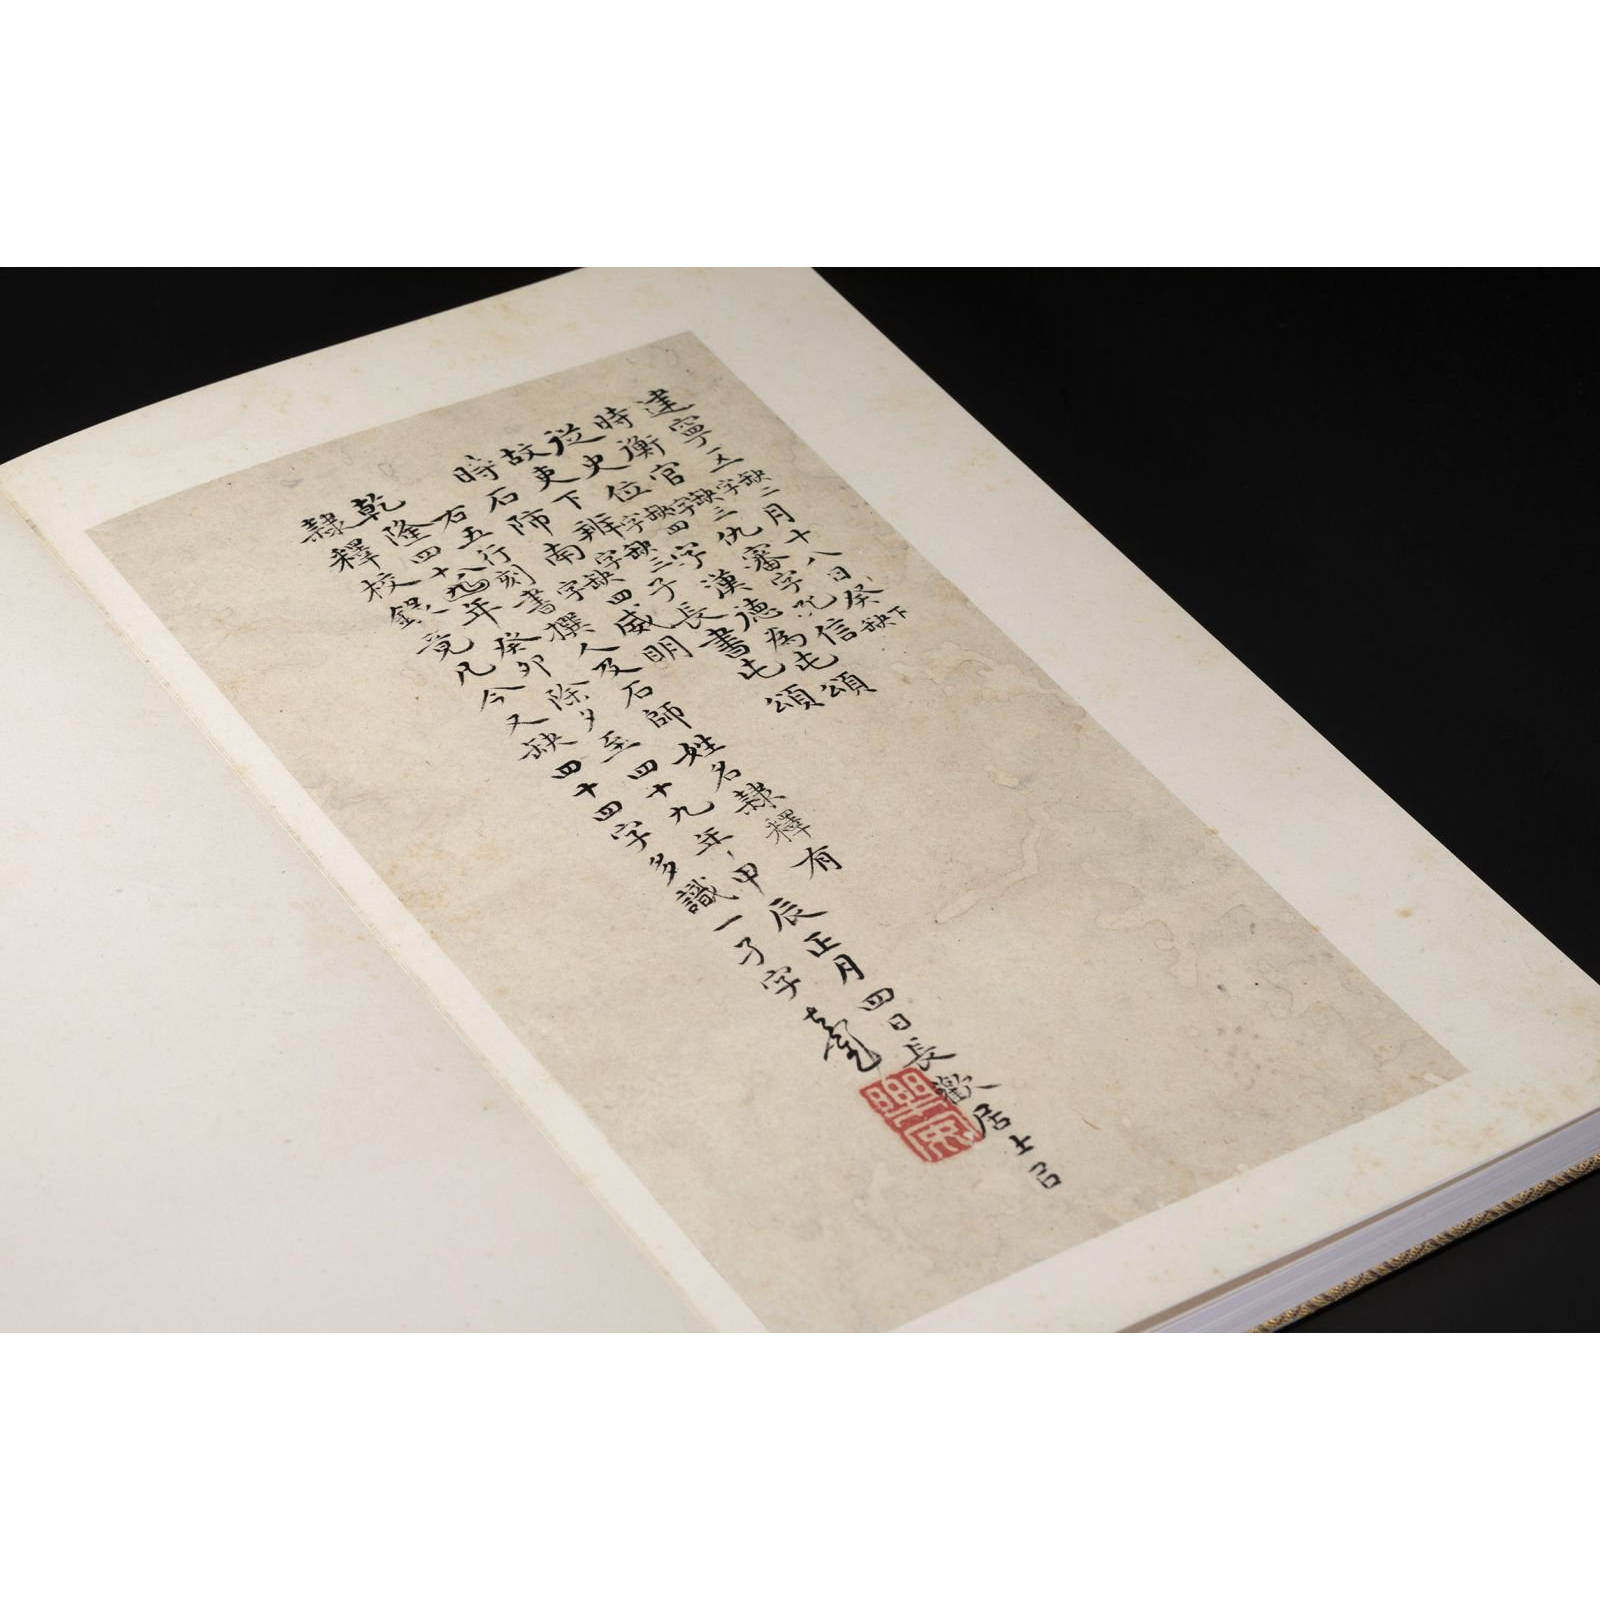 建寧五缺字二月十八日癸缺下
時衡官缺字三仇審字孔信
從史位缺字四字漢德為此頌
故吏下辨缺字三子長書此頌
時石師南缺字四威明
右五行刻書字撰人及石師姓名隸釋有
乾隆四十八年癸卯除夕至四十九年甲辰正月四日長歡居士
隸釋校錄竟凡今又缺四十四字多識一了字